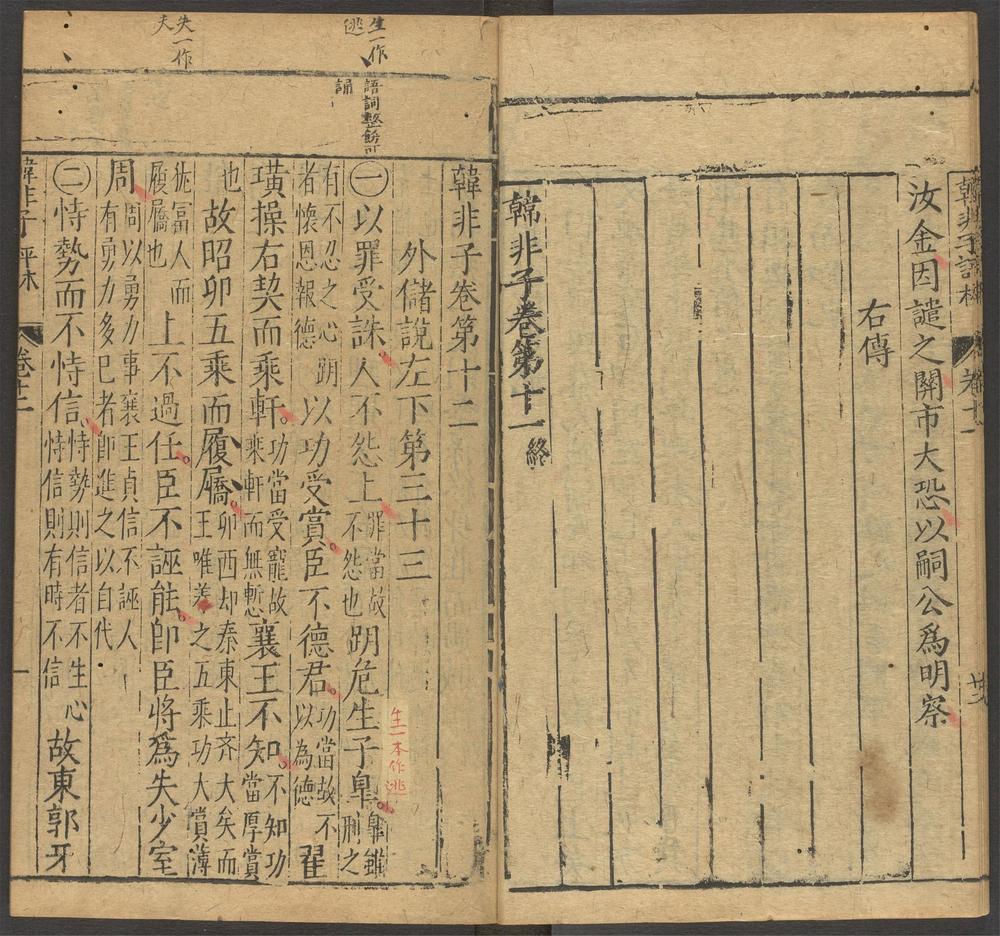 韓非子評林
卷十一
汝金因譴之關市大恐以嗣公爲明察
右傳
韓非子卷第十一終
生一作逃
失一作夫
語詞整飭可誦
韓非子卷第十二
外儲說左下第三十三
㊀以罪受誅人不怨上罪當故不怨也跀危生子臯臯雖刑之
有不忍之心跀者懷恩報德以功受賞臣不德君功當故不以為德翟
璜操右契而乘軒功當受寵故乘軒而無慙襄王不知不知功當厚賞
也故昭卯五乘而履屩卯西却秦東止齊大矣而王唯養之五乘功大賞薄
猶富人而履屩也上不過任臣不誣能卽臣將爲失少室
周周以勇力事襄王貞信不誣人有勇力多已者卽進之以自代
㊁恃勢而不恃信恃勢則信者不生心恃信則有時不信故東郭牙
生一本作逃
韓非子評林
卷十二
一